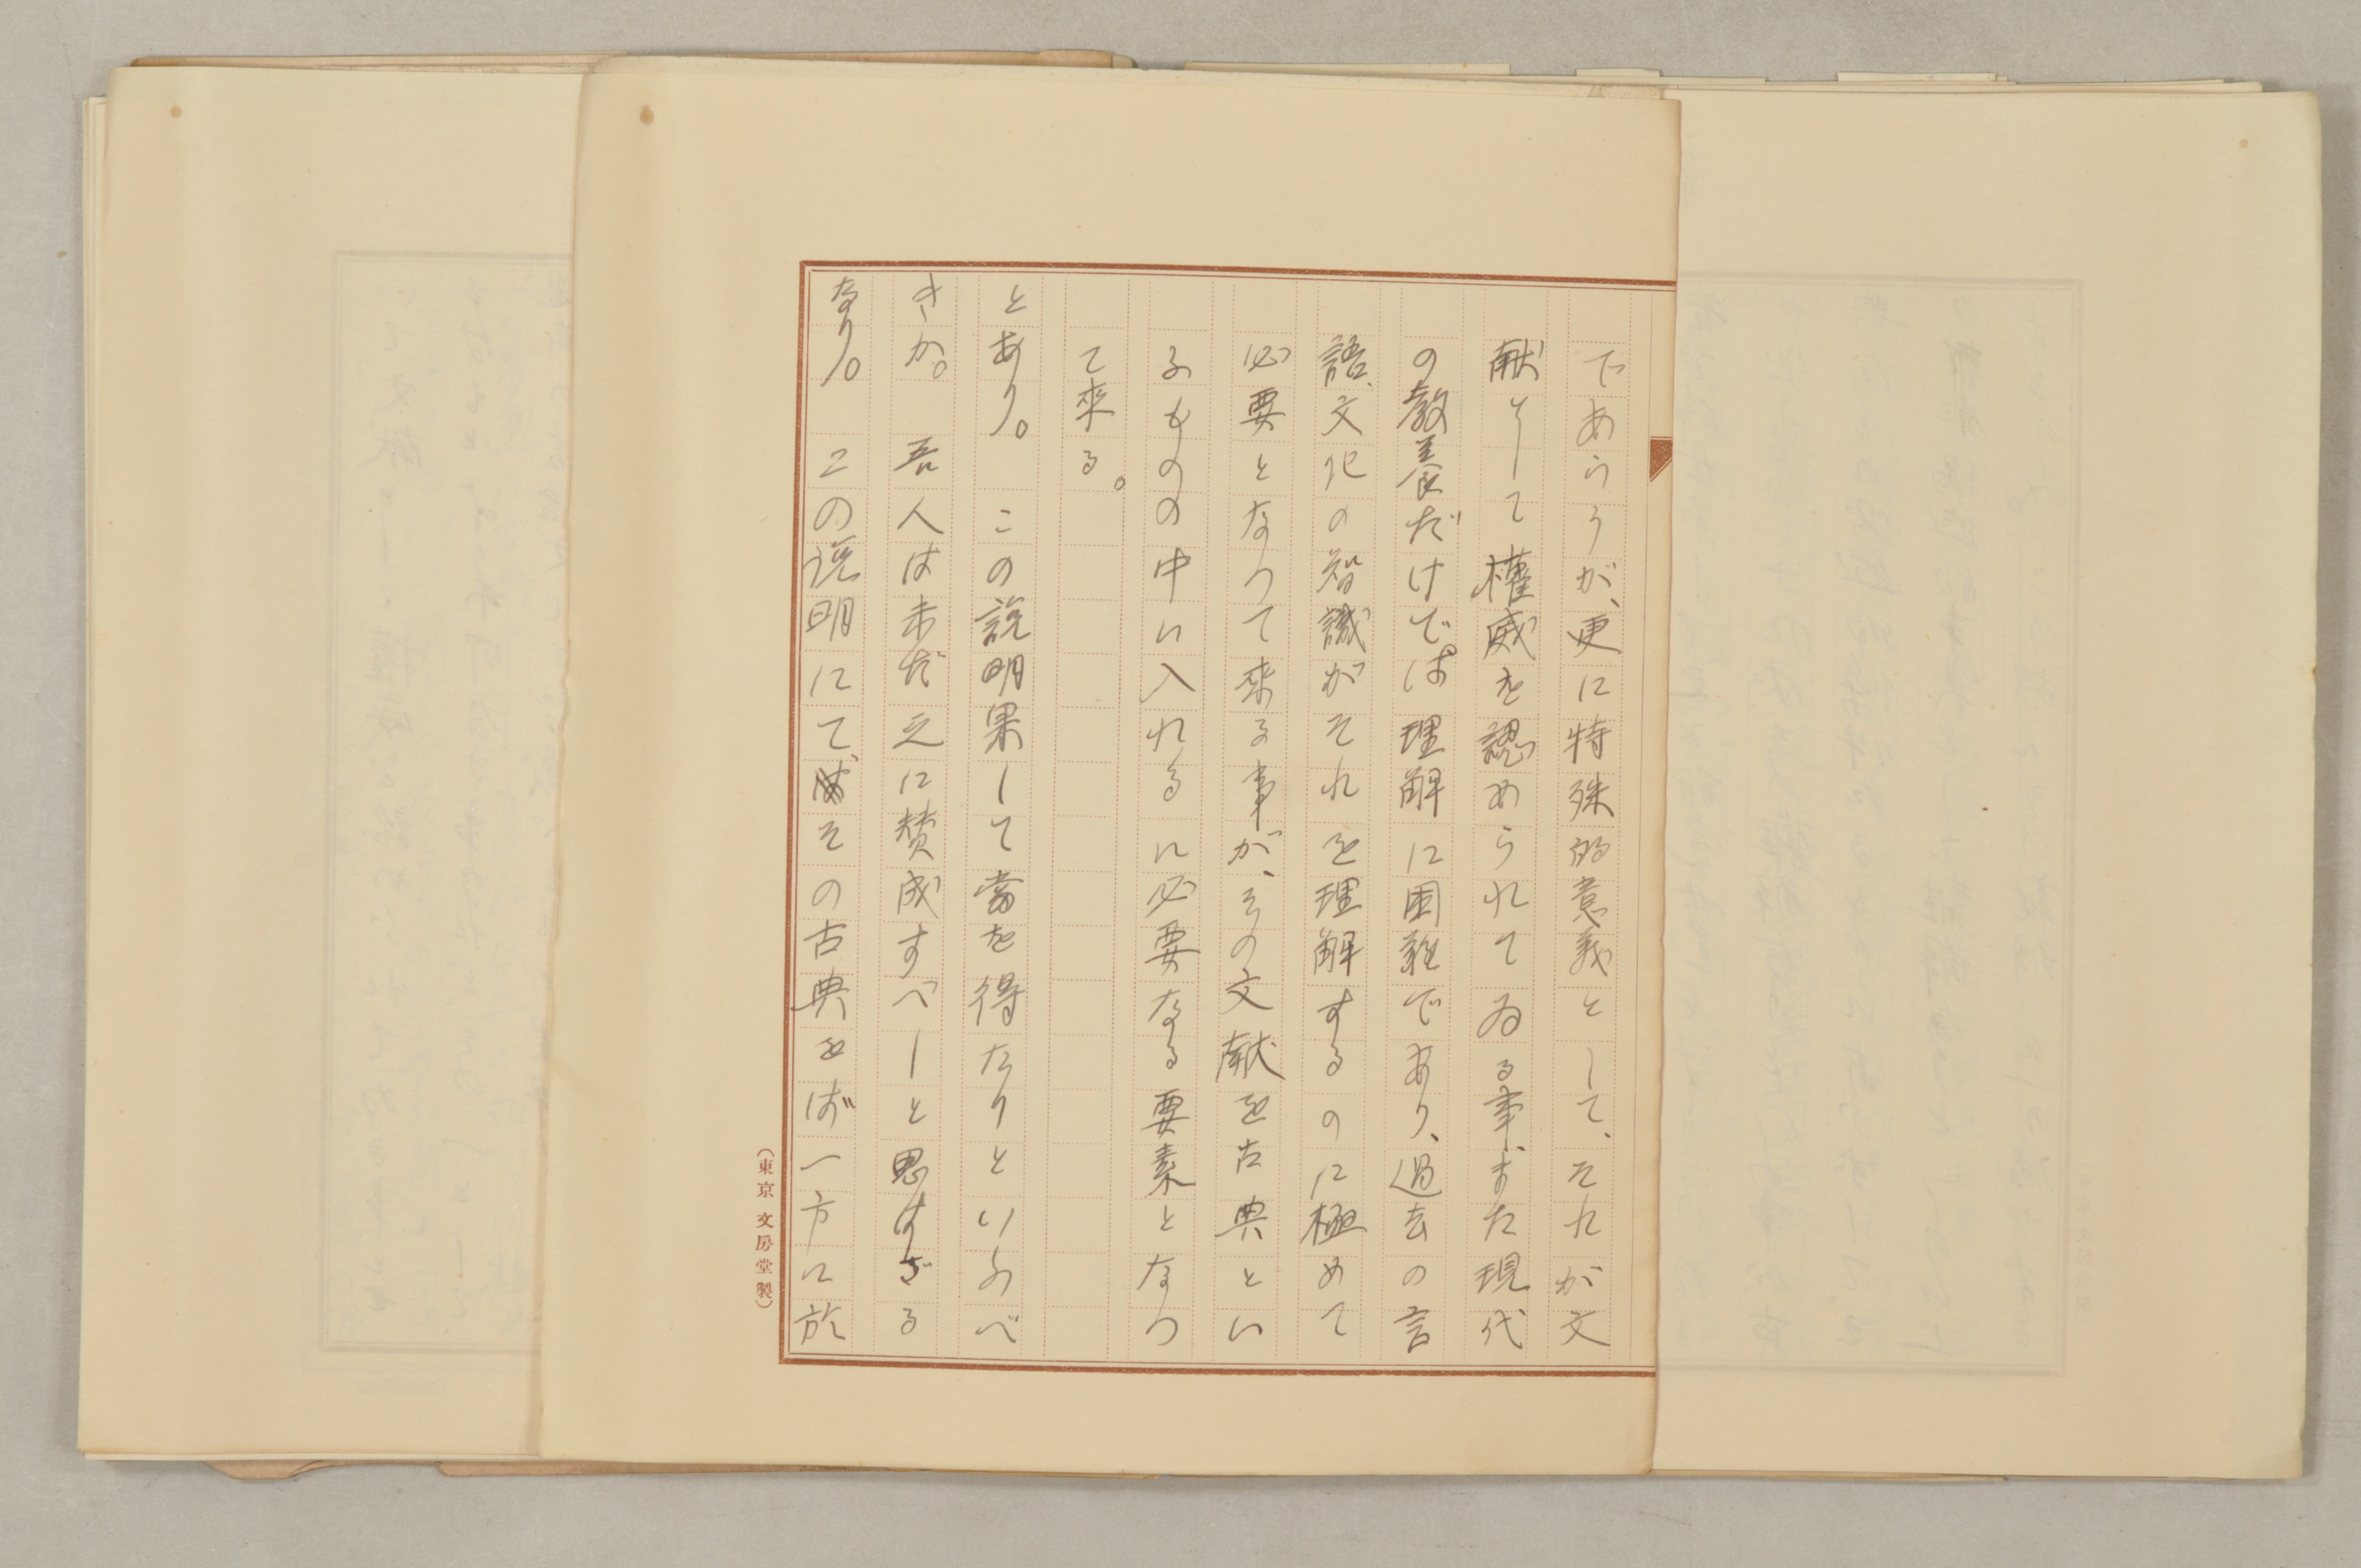 であらうが、更に特殊的意義として、それが文
献として權威を認められてゐる事、また現代
の教養だけでは理解に困難であり、過去の言
語、文化の智識がそれを理解するのに極めて
必要となつて来る事が、その文献を古典とい
ふものの中に入れるに必要なる要素となつ
て來る。
とあり。この説明果して當を得たりといふべ
きか。吾人は未だ之に賛成すべしと思はざる
なり。この説明にて、その古典をば一方に於
（東京 文房堂製）